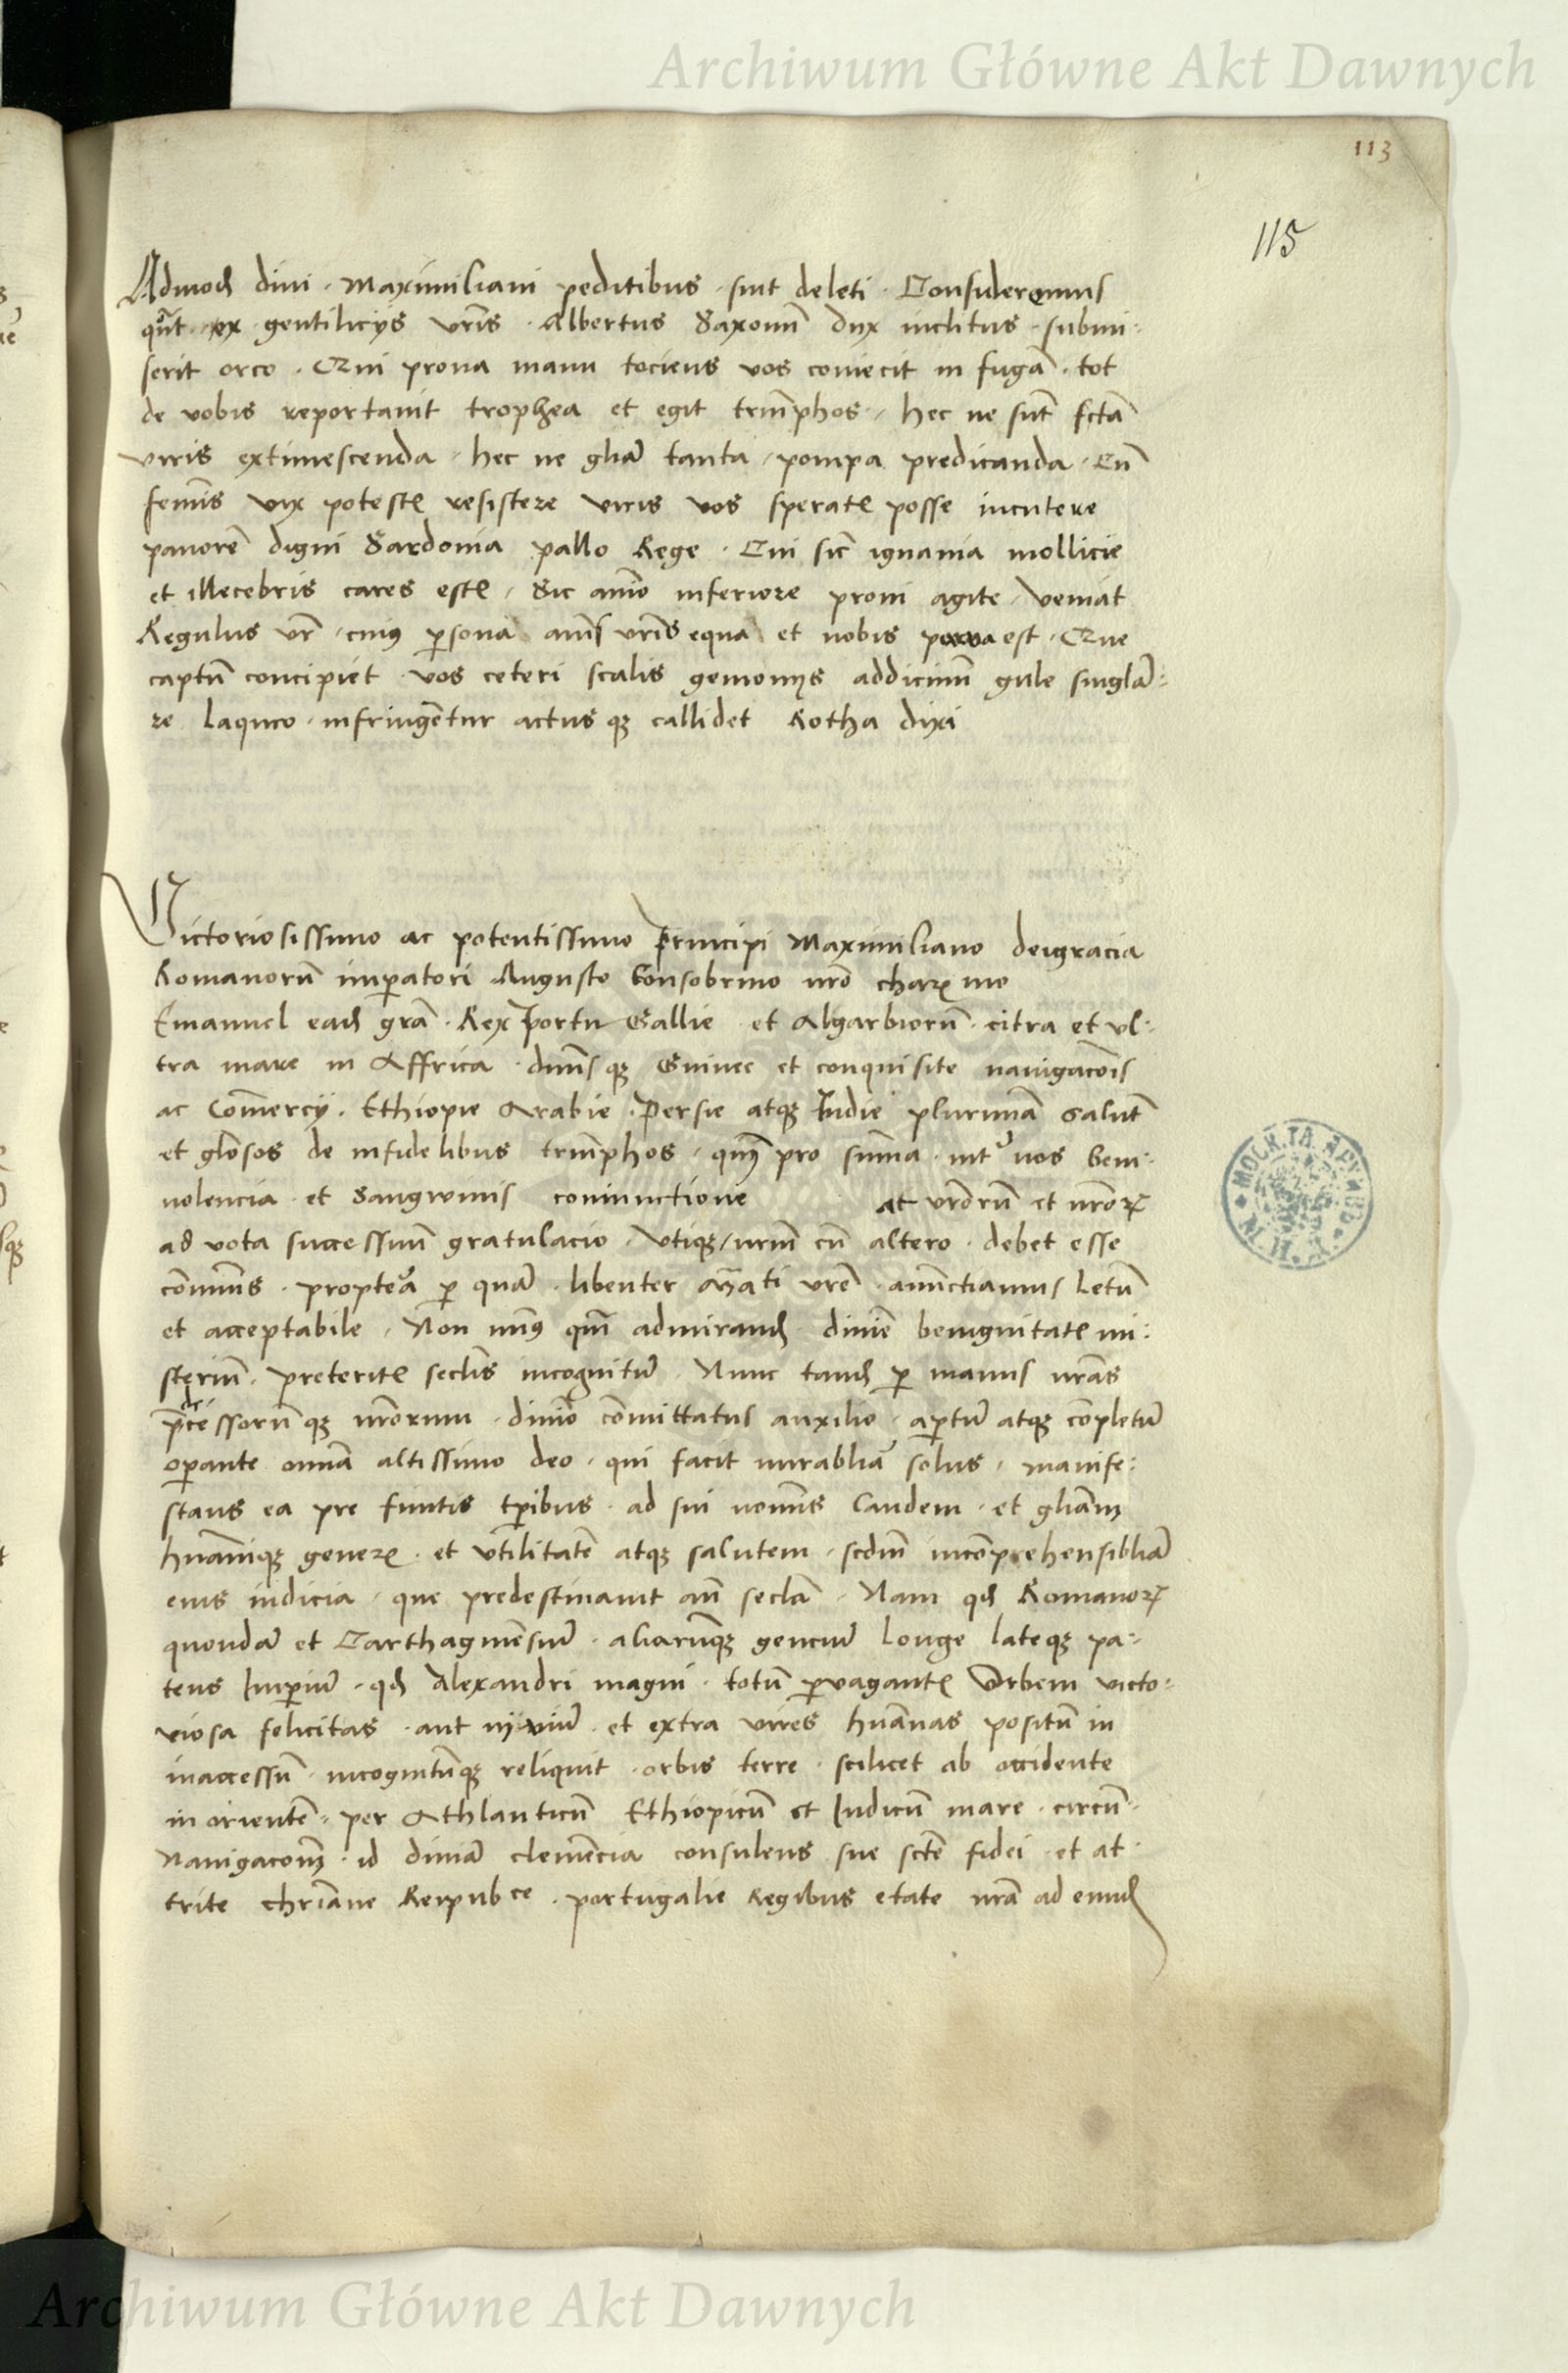 Archiwum Główne Akt Dawnych
113
115
Admod divi . Maximiliani peditibus . sint deleti . Consideremus
qnt . ex . gentilicys vris . Albertus Saxonu dux inclitus . submi:
serit orco . Qui prona manu tociens vos coniecit in fuga . tot
de vobis reportavit trophea et egit triuphos . hec ne sut fcta
viris extimescenda . hec ne glia tanta . pompa predicanda . Cu
feminis vix potestis resistere viris vos speratis posse incutere
pavore digni Sardonia pallo Rege . Cui sic ignavia mollicie
et illecebris cares estis . Sic animo inferiore proni agite . veniat
Regulus vr . cuius psona animis vris equa et nobis parva est . Que
captu concipiet . vos ceteri scalis gemoniis addicimus gule singla:
re laqueo . infringetur actus qz callidet Rotha dixi
Victoriosissimo ac potentissimo Principi Maximiliano dei gracia
Romanoru imperatori Augusto Consobrino nro charismo
Emanuel ead gra . Rex Portu Gallie et Algarbioru . citra et ul:
tra mare in Affrica . dnus qz Guinee et conquisite navigacois
ac Comercy . Ethiopie Arabie . Persie atqz Indie plurima salute
et gliosos de infidelibus triuphos . qm pro suma . int nos beni:
volencia et Sangwinis coniunctione at vroru et nroru
ad vota successuu gratulacio . utiqz / unu cu altero . debet esse
comunis . proptea p qua . libenter Mati vre . anuctiamus letu
et acceptabile . Non minus qm admirand . divine benignitatis mi:
steriu . preteritis seclis incognitu . Nunc tand p manus nras
pdecessoruqz nrorum . divino comittatus auxilio . aptu atqz copletu
opante omnia altissimo deo . qui facit mirabilia solus . manife:
stans ea pre finitis tpibus . ad sui nominis laudem . et gliam
huaniqz generis . et utilitate atqz salutem . scdm incomprehensiblia
eius iudicia . que predestinavit an secla . Nam qd Romanoru
quonda et Carthaginensiu . aliaruqz genciu longe lateqz pa:
tens Imperiu . qd Alexandri magni . totu pvagantis Orbem victo:
riosa felicitas . aut et extra vires huanas positu in
inaccessu . incognituqz reliquit . orbis terre . scilicet ab occidente
in oriente . per Athlanticu Ethiopicu et Indicu mare . circu:
Navigacom . id divina clemencia consulens sue scte fidei . et at
trite chriane Reipubce . portugalie Regibus etate nra ad
Archiwum Główne Akt Dawnych